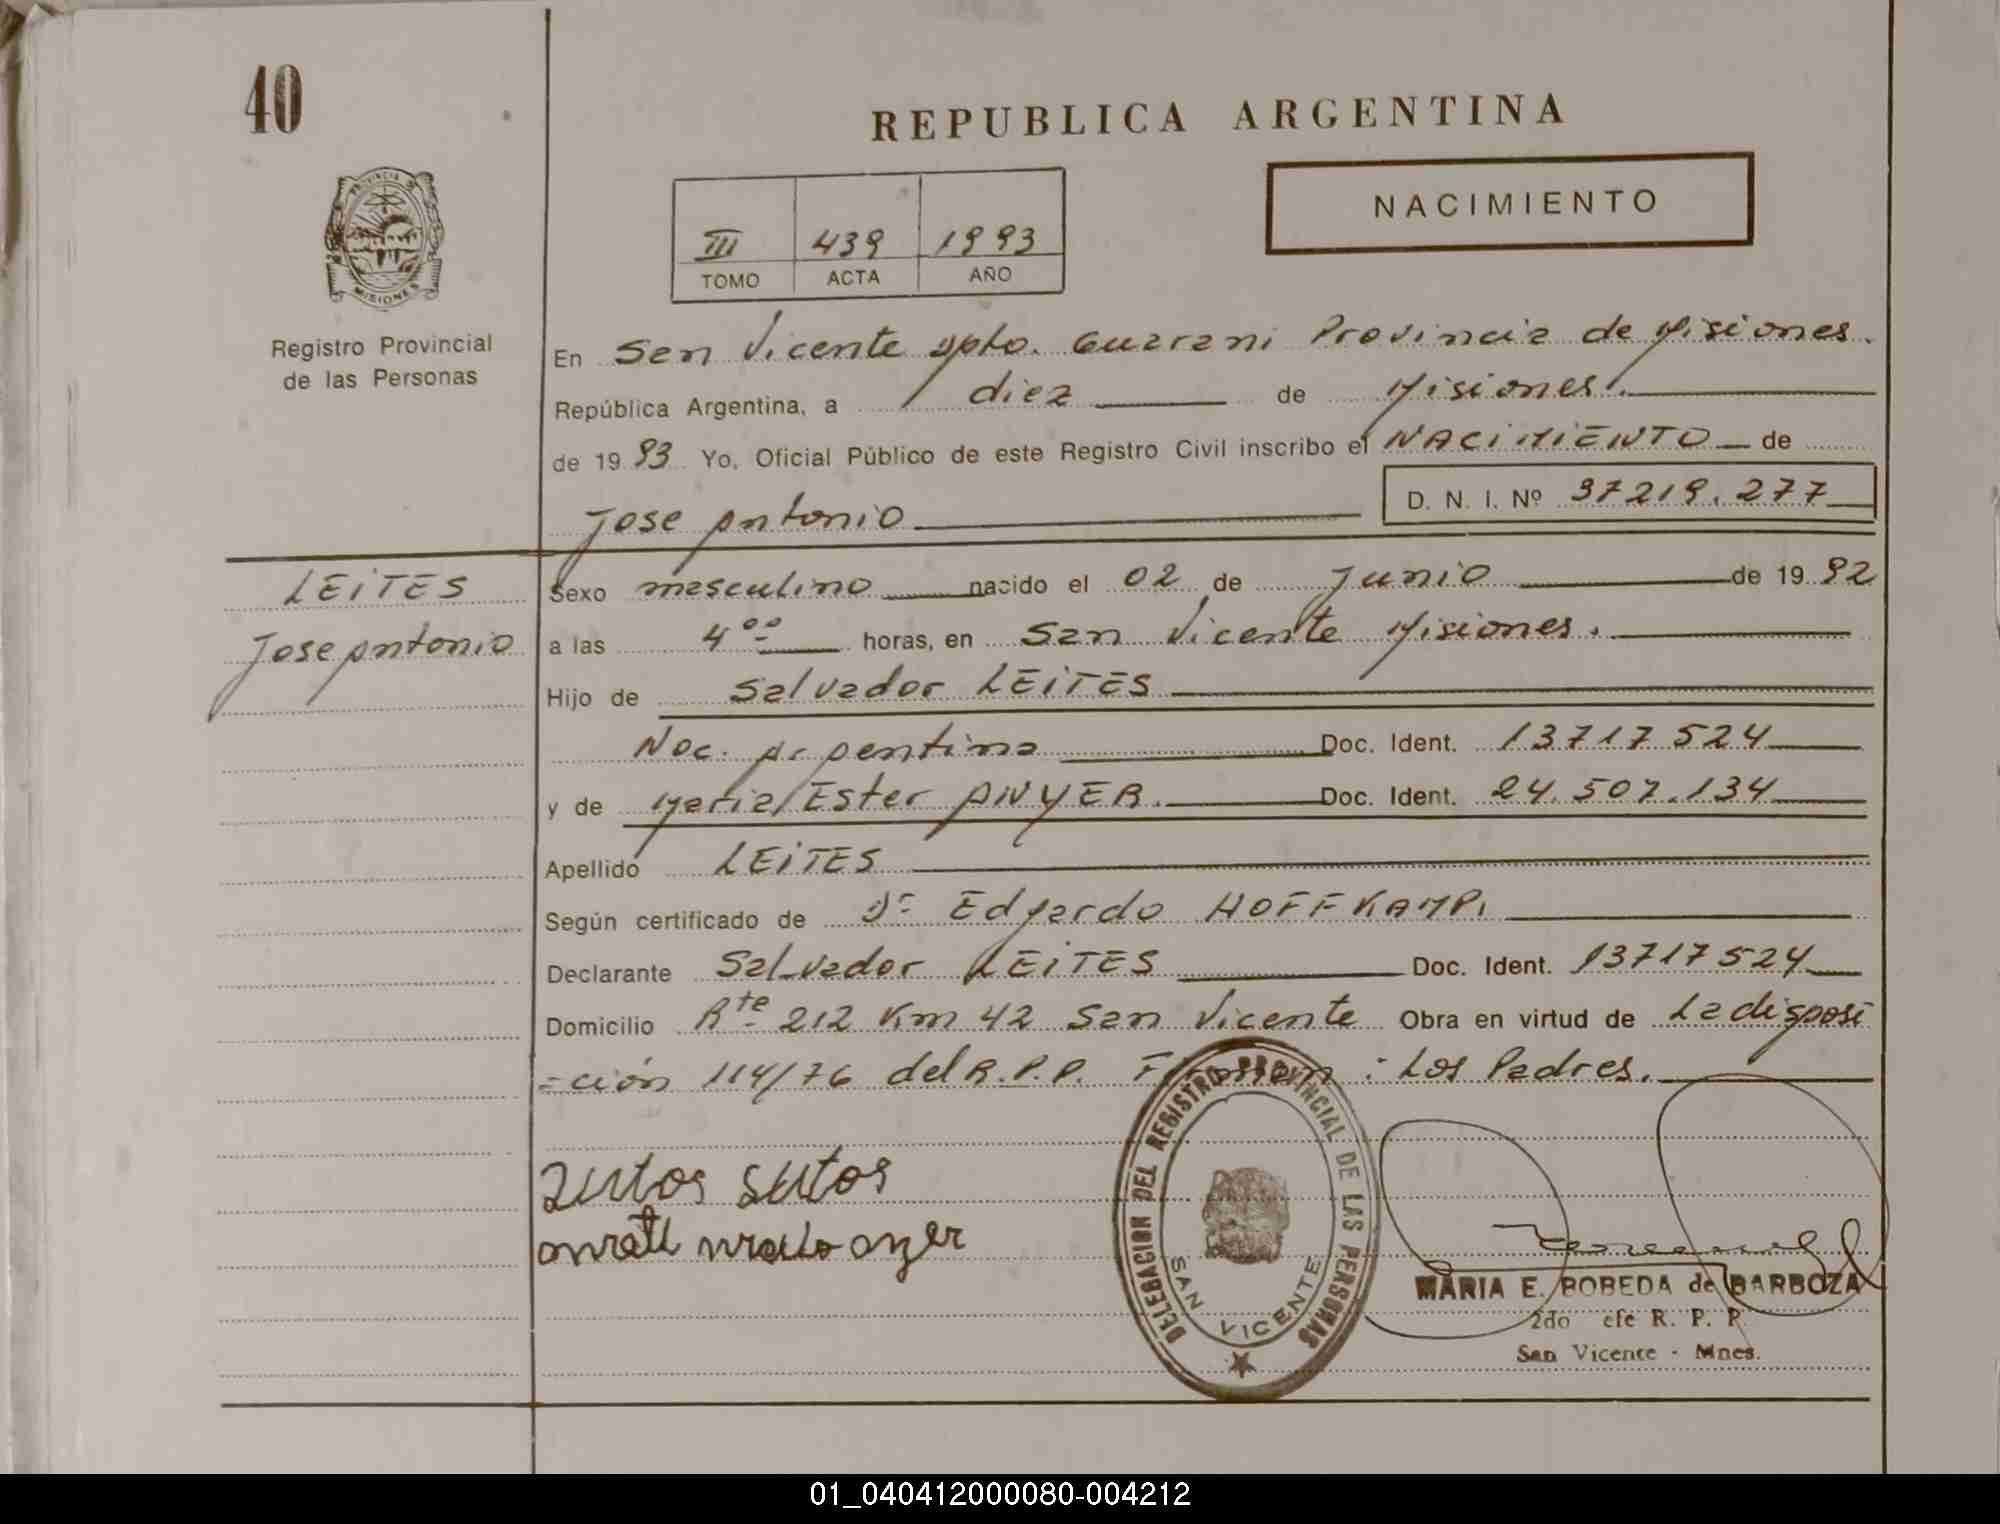 40
REPUBLICA ARGENTINA
NACIMIENTO
III 439 1993
TOMO ACTA AÑO
PROVINCIA DE
MISIONES
Registro Provincial
de las Personas
En San Vicente Dpto. Guarani Provincia de Misiones.
República Argentina, a diez de Misiones.
de 1993 Yo, Oficial Público de este Registro Civil inscribo el NACIMIENTO de
Jose Antonio D. N. I. Nº 37219.277
LEITES
Jose Antonio
Sexo masculino nacido el 02 de Junio de 1992
a las 4⁰⁰ horas, en San Vicente Misiones.
Hijo de Salvador LEITES
Nac. Argentina Doc. Ident. 13717524
y de Maria Ester ANYER. Doc. Ident. 24.507.134
Apellido LEITES
Según certificado de Dr Edgardo HOFFKAMP.
Declarante Salvador LEITES Doc. Ident. 13717524
Domicilio Rte 212 Km 42 San Vicente Obra en virtud de La disposi
=ción 114/76 del R.P.P. Firman: Los Padres.
DELEGACION DEL REGISTRO PROVINCIAL DE LAS PERSONAS
SAN VICENTE
MARIA E. BOBEDA de BARBOZA
2do efe R. P. P.
San Vicente - Mnes.
01_040412000080-004212